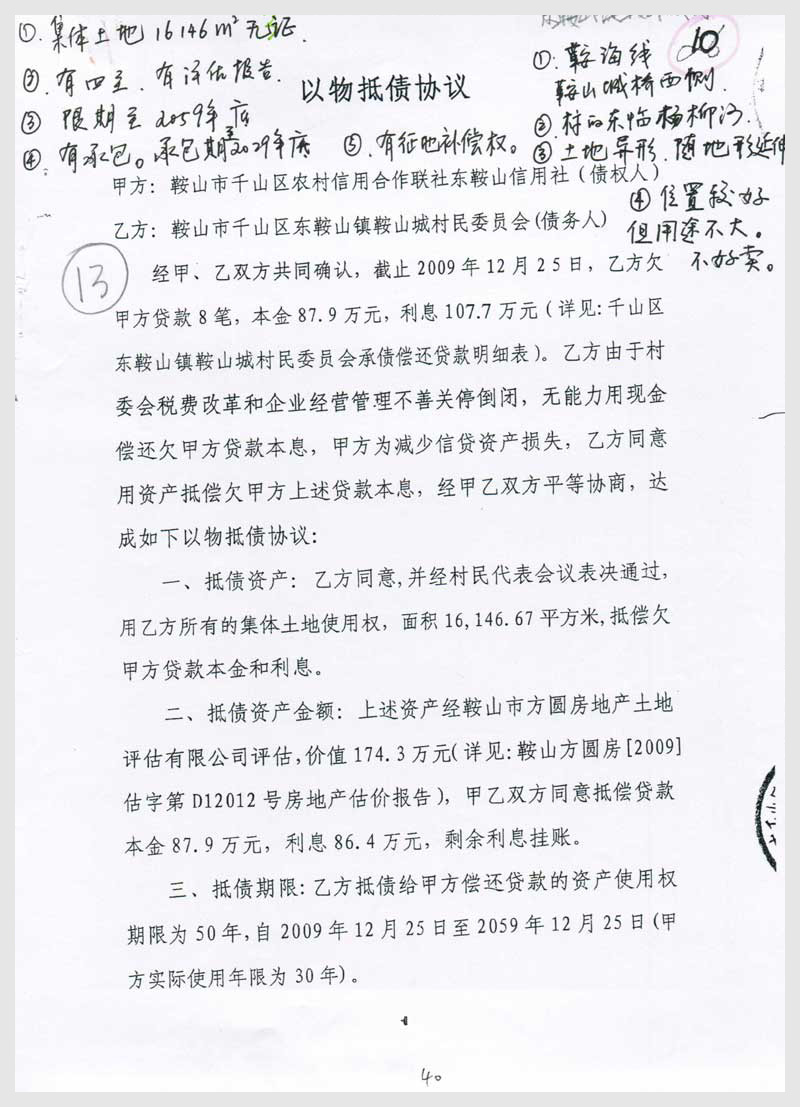 ①. 集体土地 16146m² 无证.
②. 有四至. 有评估报告.
③ 限期至 2059年底
④. 有承包。承包期至2029年底
⑤. 有征地补偿权。
10
①. 鞍海线
鞍山城桥西侧.
② 村的东临杨柳河.
③ 土地异形. 随地形延伸
④ 位置较好
但用途不大。
不好卖。
以物抵债协议
甲方：鞍山市千山区农村信用合作联社东鞍山信用社（债权人）
乙方：鞍山市千山区东鞍山镇鞍山城村民委员会(债务人)
13
经甲、乙双方共同确认，截止 2009 年 12 月 25 日，乙方欠
甲方贷款 8 笔，本金 87.9 万元，利息 107.7 万元（详见:千山区
东鞍山镇鞍山城村民委员会承债偿还贷款明细表）。乙方由于村
委会税费改革和企业经营管理不善关停倒闭，无能力用现金
偿还欠甲方贷款本息，甲方为减少信贷资产损失，乙方同意
用资产抵偿欠甲方上述贷款本息，经甲乙双方平等协商，达
成如下以物抵债协议:
一、抵债资产： 乙方同意,并经村民代表会议表决通过，
用乙方所有的集体土地使用权，面积 16,146.67 平方米,抵偿欠
甲方贷款本金和利息。
二、抵债资产金额：上述资产经鞍山市方圆房地产土地
评估有限公司评估,价值 174.3 万元(详见:鞍山方圆房[2009]
估字第 D12012 号房地产估价报告)，甲乙双方同意抵偿贷款
本金 87.9 万元，利息 86.4 万元，剩余利息挂账。
三、抵债期限:乙方抵债给甲方偿还贷款的资产使用权
期限为 50 年,自 2009 年 12 月 25 日至 2059 年 12 月 25 日(甲
方实际使用年限为 30 年)。
40